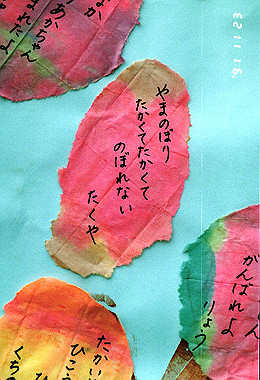 なか
あかちゃん
まれたよ
'91 11 23
やまのぼり
たかくてたかくて
のぼれない
たくや
ん
がんばれよ
りょう
たかい
ひこう
ひ
くち